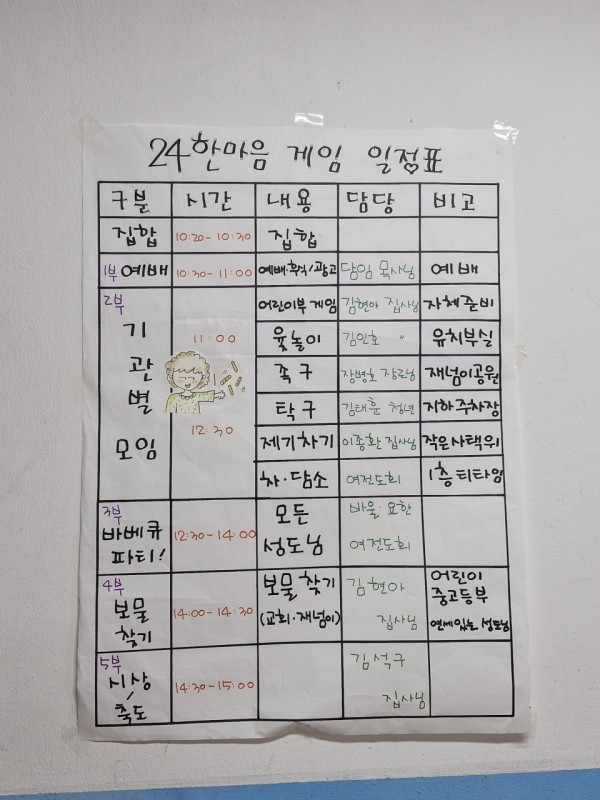 24 한마음 게임 일정표
구분 시간 내용 담당 비고
집합 10:20-10:30 집합
1부 예배 10:30-11:00 예배·휴식/광고 담임 목사님 예배
2부 기관별 모임 11:00 12:30
어린이부 게임 김현아 집사님 자체준비
윷놀이 김인호 〃 유치부실
족구 장병호 장로님 재넘이공원
탁구 김태훈 청년 지하주차장
제기차기 이종환 집사님 작은사택위
차·담소 여전도회 1층 티타임
3부 바베큐 파티! 12:30-14:00 모든 성도님 바울·요한 여전도회
4부 보물 찾기 14:00-14:30 보물 찾기 (교회·재넘이) 김현아 집사님 어린이 중고등부 연세있는 성도님
5부 시상/축도 14:30-15:00 김석구 집사님